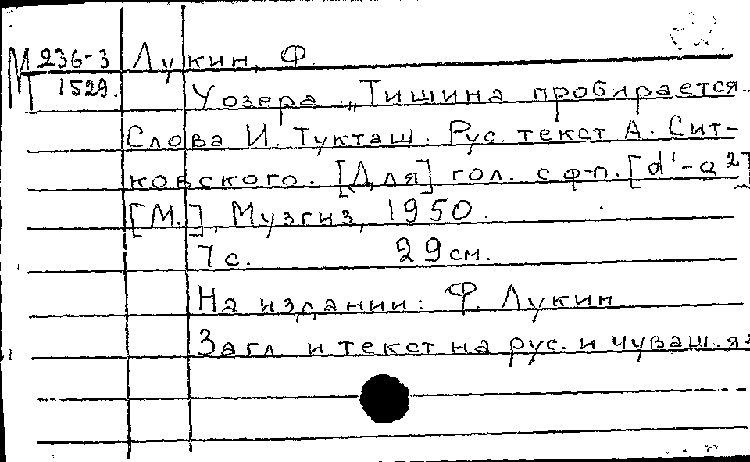 М 236-3 Лукин, Ф.
1529.
У озера „Тишина пробирается..
Слова И. Тукташ. Рус. текст А. Сит-
ковского. [Для] гол. с ф-п. [d¹-a²]
[М.], Музгиз, 1950.
7 с. 29 см.
На издании: Ф. Лукин
Загл. и текст на рус. и чуваш. яз